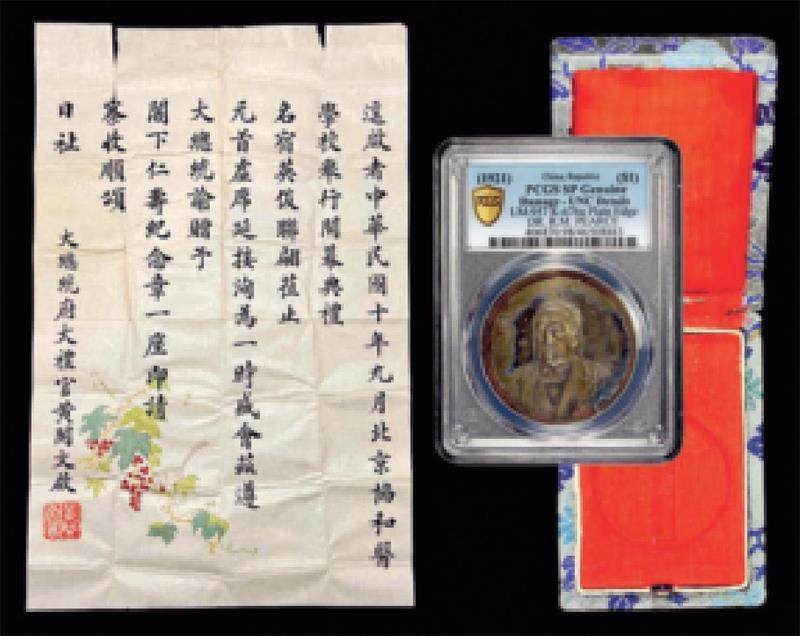 逕啟者中華民國十年九月北京協和醫
學校舉行開幕典禮
名宿英俊聯翩蒞止
元首虛席延接洵為一時盛會茲遵
大總統諭贈予
閣下仁壽紀念章一座即請
察收順頌
日祉
大總統府大禮官黃開文啟
(1921) China, Republic ($1)
PCGS SP Genuine
Damage - UNC Details
L&M-957 K-676a Plain Edge
DR. R.M. PEARCE